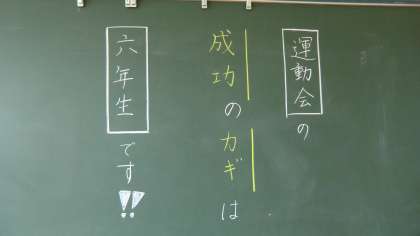 運動会の
成功のカギは
六年生です!!